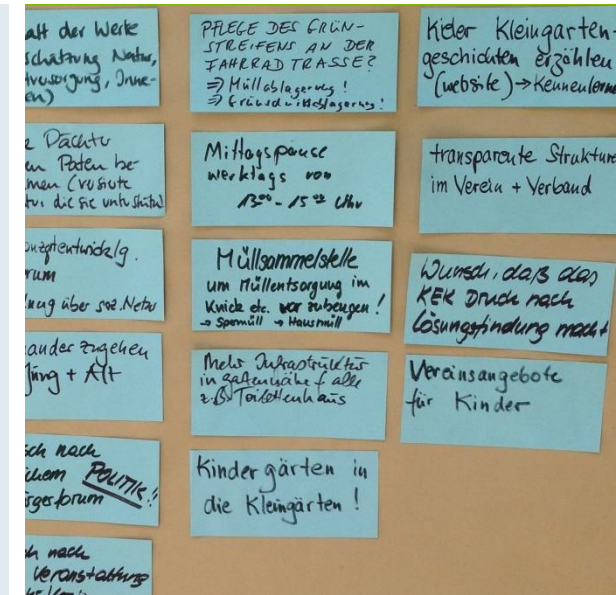 alt der Werte
schätzung Natur,
tversorgung, Inne-
en)
Dächtr
en Paten be-
men (
tur die sie unterstützen)
onzeptentwicklg.
rum
nung über soz. Netzw
ander zugehen
Jung + Alt
sch nach
ichem POLITIK!!
ürgerforum
ch nach
Veranstaltung
PFLEGE DES GRÜN-
STREIFENS AN DER
FAHRRADTRASSE?
⇒ Müllablagerung!
⇒ Grünschnittablagerung!
Mittagspause
werktags von
13⁰⁰ - 15⁰⁰ Uhr
Müllsammelstelle
um Müllentsorgung im
Knick etc. vorzubeugen!
→ Sperrmüll → Hausmüll
Mehr Infrastruktur
in gartennähe f. alle
z.B. Toilettenhaus
Kindergärten in
die Kleingärten!
Kieler Kleingarten-
geschichten erzählen
(website) → Kennenlerne
transparente Strukture
im Verein + Verband
Wunsch, daß das
KEK Druck nach
Lösungsfindung macht
Vereinsangebote
für Kinder